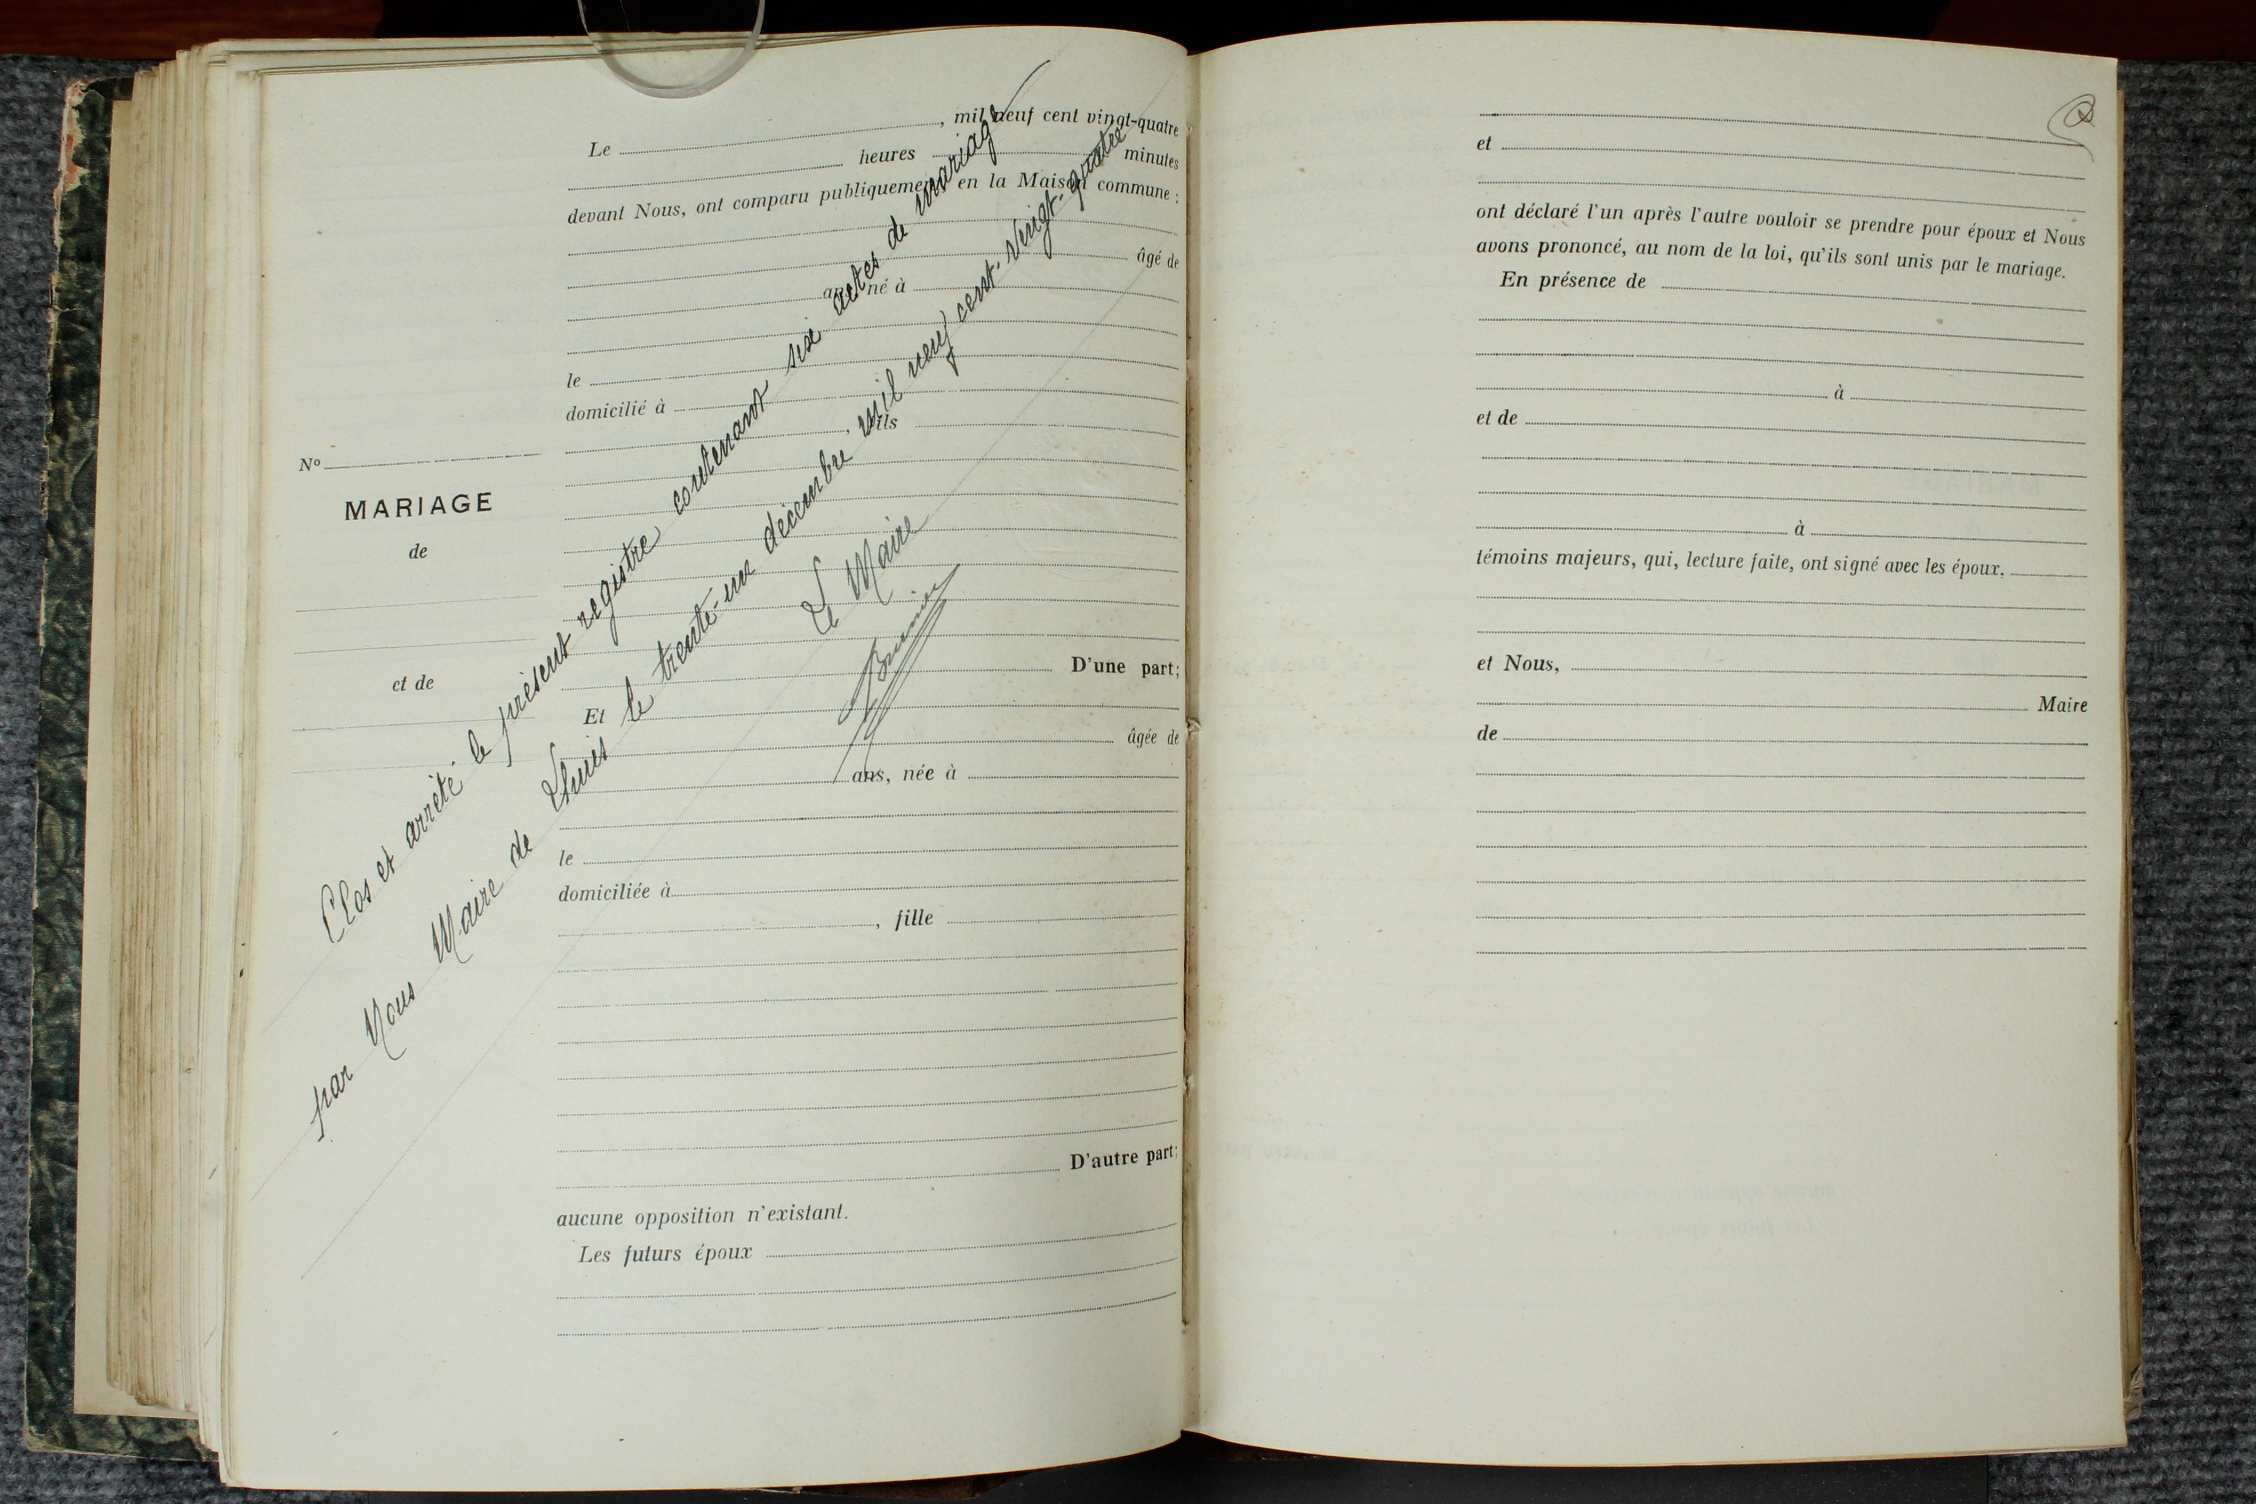 Le , mil neuf cent vingt-quatre
heures minutes
devant Nous, ont comparu publiquement en la Maison commune :
âgé de
ans né à
le
domicilié à
, fils
Nº
MARIAGE
de
et de
D'une part;
Et
âgée de
ans, née à
le
domiciliée à
, fille
D'autre part;
aucune opposition n'existant.
Les futurs époux
Clos et arrêté le présent registre contenant six actes de mariage
par Nous Maire de le trente-un décembre mil neuf cent vingt-quatre
Le Maire
et
ont déclaré l'un après l'autre vouloir se prendre pour époux et Nous
avons prononcé, au nom de la loi, qu'ils sont unis par le mariage.
En présence de
à
et de
à
témoins majeurs, qui, lecture faite, ont signé avec les époux.
et Nous,
Maire
de